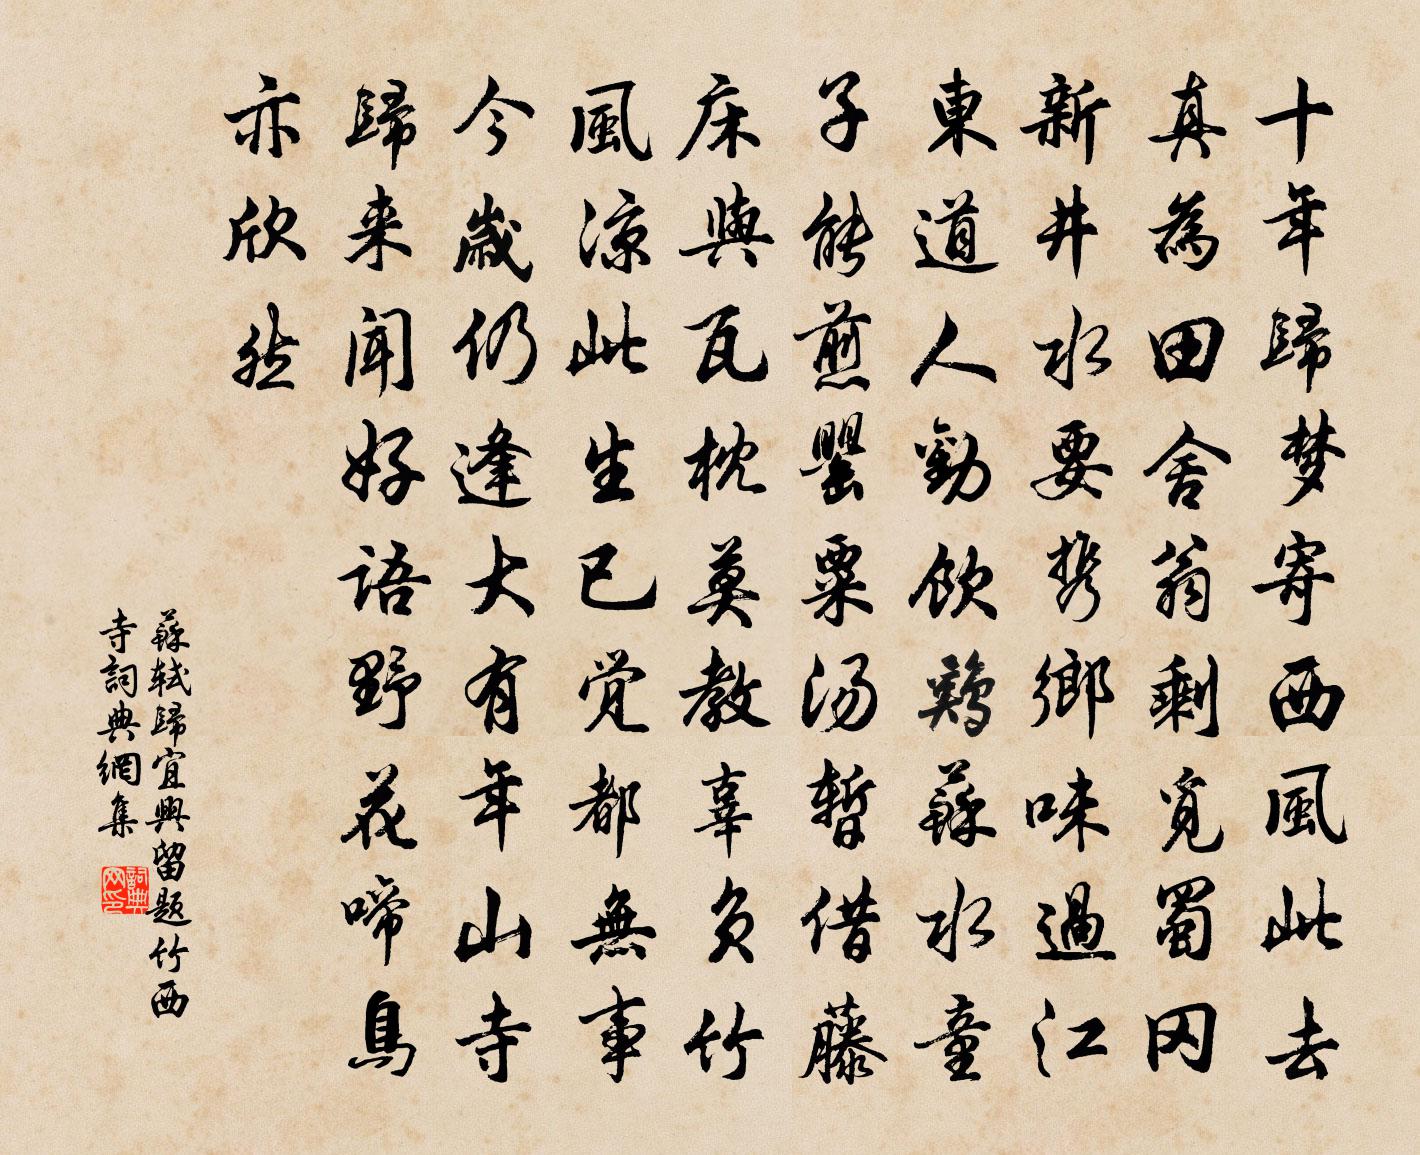 十年歸梦寄西風此去
真為田舍翁剩覓蜀冈
新井水要携鄉味過江
東道人勸飲鷄蘇水童
子能煎罌粟湯暫借藤
床與瓦枕莫教辜負竹
風涼此生已觉都無事
今歲仍逢大有年山寺
歸来聞好語野花啼鳥
亦欣然
蘇軾歸宜興留題竹西
寺詞典網集
詞典
网印